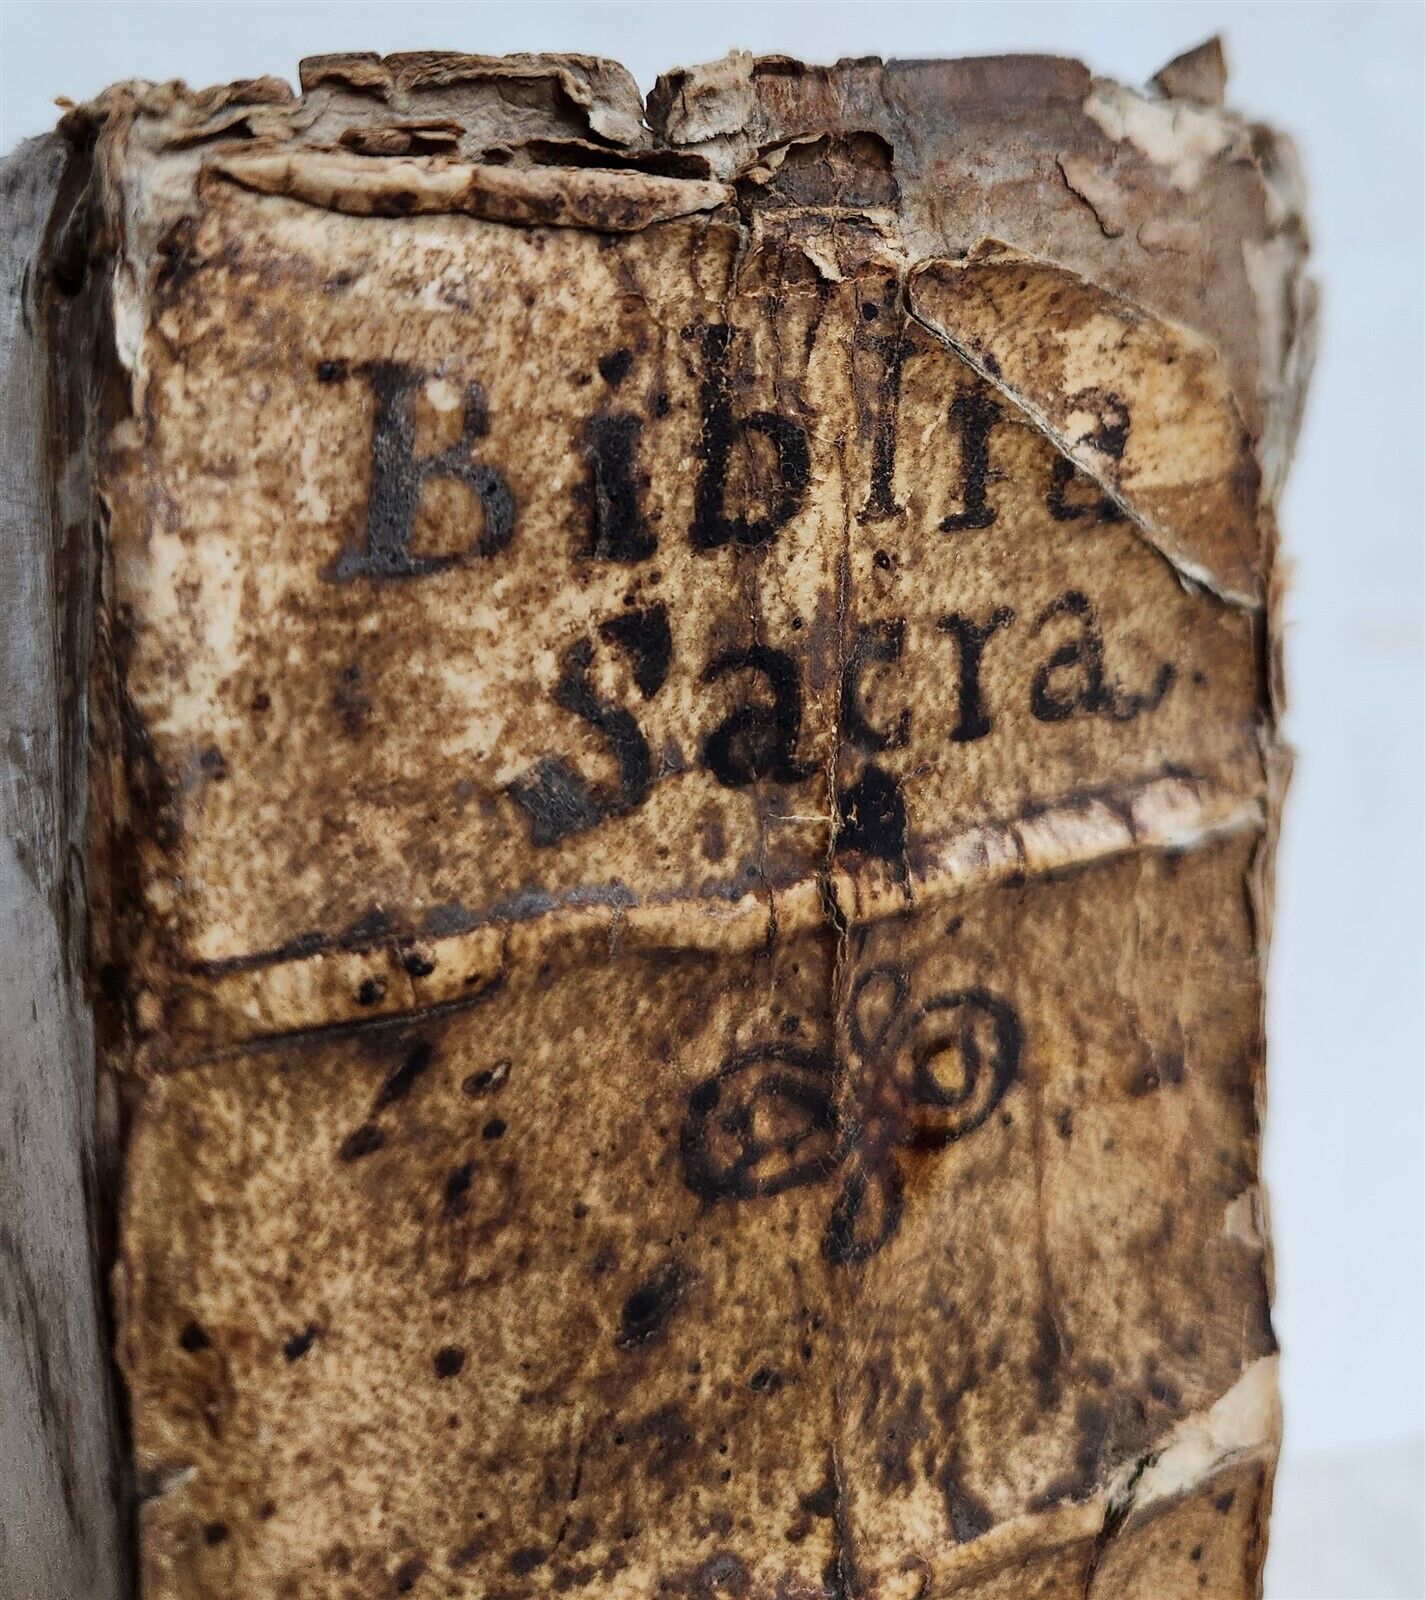 Biblia
Sacra